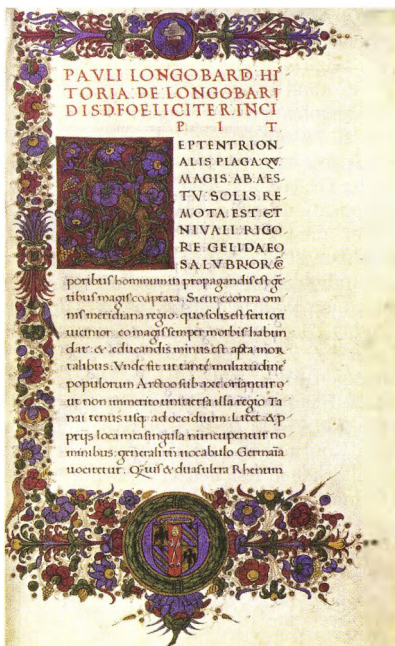 PAVLI LONGOBARD HI
TORIA DE LONGOBARI
DIS.D.FOELICITER.INCI
P I T
S
EPTENTRION
ALIS PLAGA QV
MAGIS AB AES
TV SOLIS RE
MOTA EST ET
NIVALI RIGO
RE GELIDA EO
SALVBRIOR
poribus hominum in propagandis est gē
tibus magis coaptata. Sicut e contra om
nis meridiana regio quo solis est feruori
uicinior eo magis semper morbis habun
dat. & educandis minus est apta mor
talibus. Vnde fit ut tantę multitudinę
populorum Arctoo sub axe oriantur
ut non immerito uniuersa illa regio Ta
nai tenus usq; ad occiduum. Licet & p
prijs loca in ea singula nuncupentur no
minibus: generali tn̄ uocabulo Germaīa
uocitetur. Quis & duas ultra Rhenum